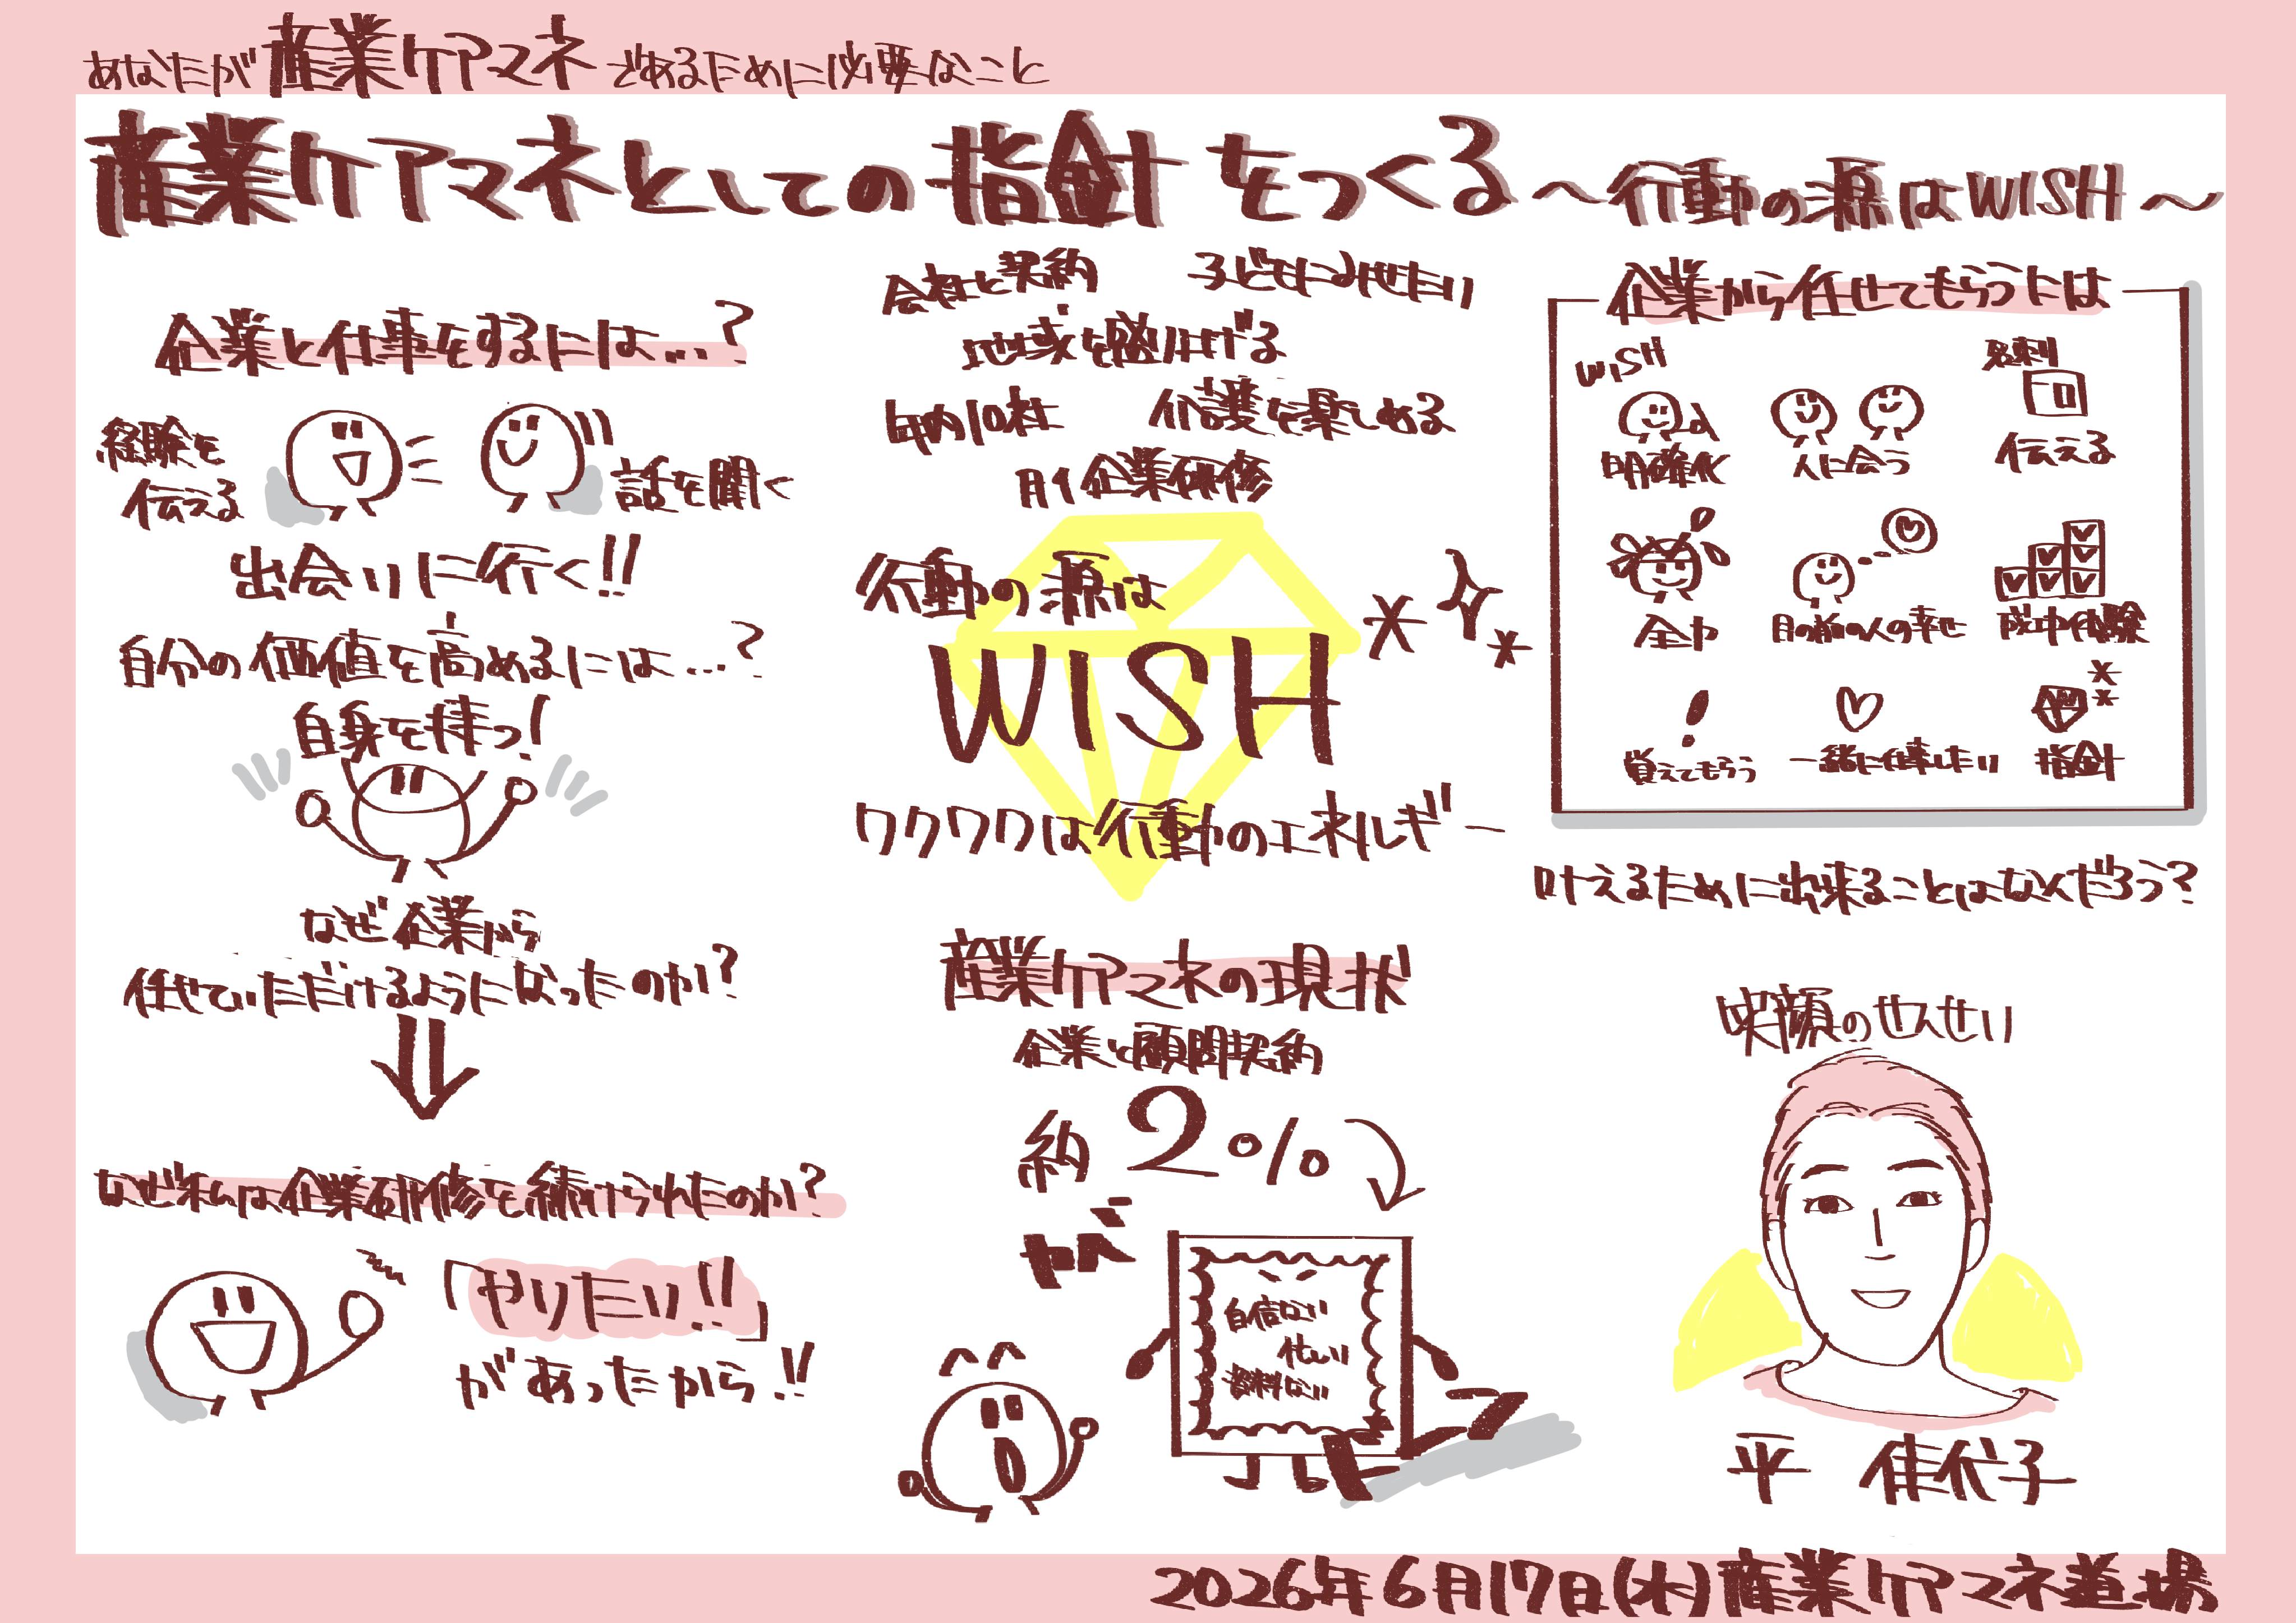 あなたが産業ケアマネであるために必要なこと
産業ケアマネとしての指針をつくる～行動の源はWISH～
企業と仕事をするには…?
経験を
伝える
話を聞く
出会いに行く!!
自分の価値を高めるには…?
自身を持つ!
なぜ企業から
任せていただけるようになったのか?
なぜ私は企業研修を続けられたのか?
「やりたい!!」
があったから!!
会社と契約
子どもにみせたい
地域を盛り上げる
年内10社
介護を楽しめる
月1企業研修
行動の源は
WISH
ワクワクは行動のエネルギー
産業ケアマネの現状
企業と顧問契約
約2%
ヤバ
自信ない
忙しい
資料ない
企業から任せてもらうには
WISH
明確化
人に会う
名刺
伝える
全力
目の前の人の幸せ
成功体験
覚えてもらう
一緒に仕事したい
指針
叶えるために出来ることはなんだろう?
笑顔のせんせい
平 佳代子
2026年6月17日(水)産業ケアマネ道場